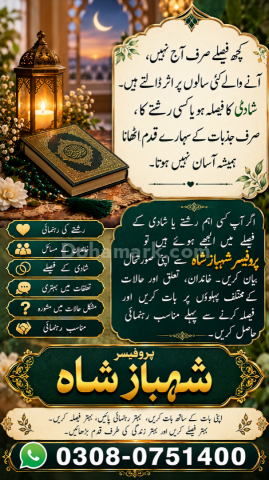 کچھ فیصلے صرف آج نہیں،
آنے والے کئی سالوں پر اثر ڈالتے ہیں۔
شادی کا فیصلہ ہو یا کسی رشتے کا،
صرف جذبات کے سہارے قدم اٹھانا
ہمیشہ آسان نہیں ہوتا۔
اگر آپ کسی اہم رشتے یا شادی کے
فیصلے میں الجھے ہوئے ہیں تو
پروفیسر شہباز شاہ سے اپنی صورتحال
بیان کریں۔ خاندان، تعلق اور حالات
کے مختلف پہلوؤں پر بات کریں اور
فیصلہ کرنے سے پہلے مناسب رہنمائی
حاصل کریں۔
رشتے کی رہنمائی
مسائل
شادی کے فیصلے
تعلقات میں بہتری
مشکل حالات میں مشورہ
مناسب رہنمائی
پروفیسر
شہباز شاہ
اپنی بات کے ساتھ بات کریں، بہتر رہنمائی پائیں، بہتر فیصلہ کریں۔
بہتر فیصلے کریں اور بہتر زندگی کی طرف قدم بڑھائیں۔
0308-0751400